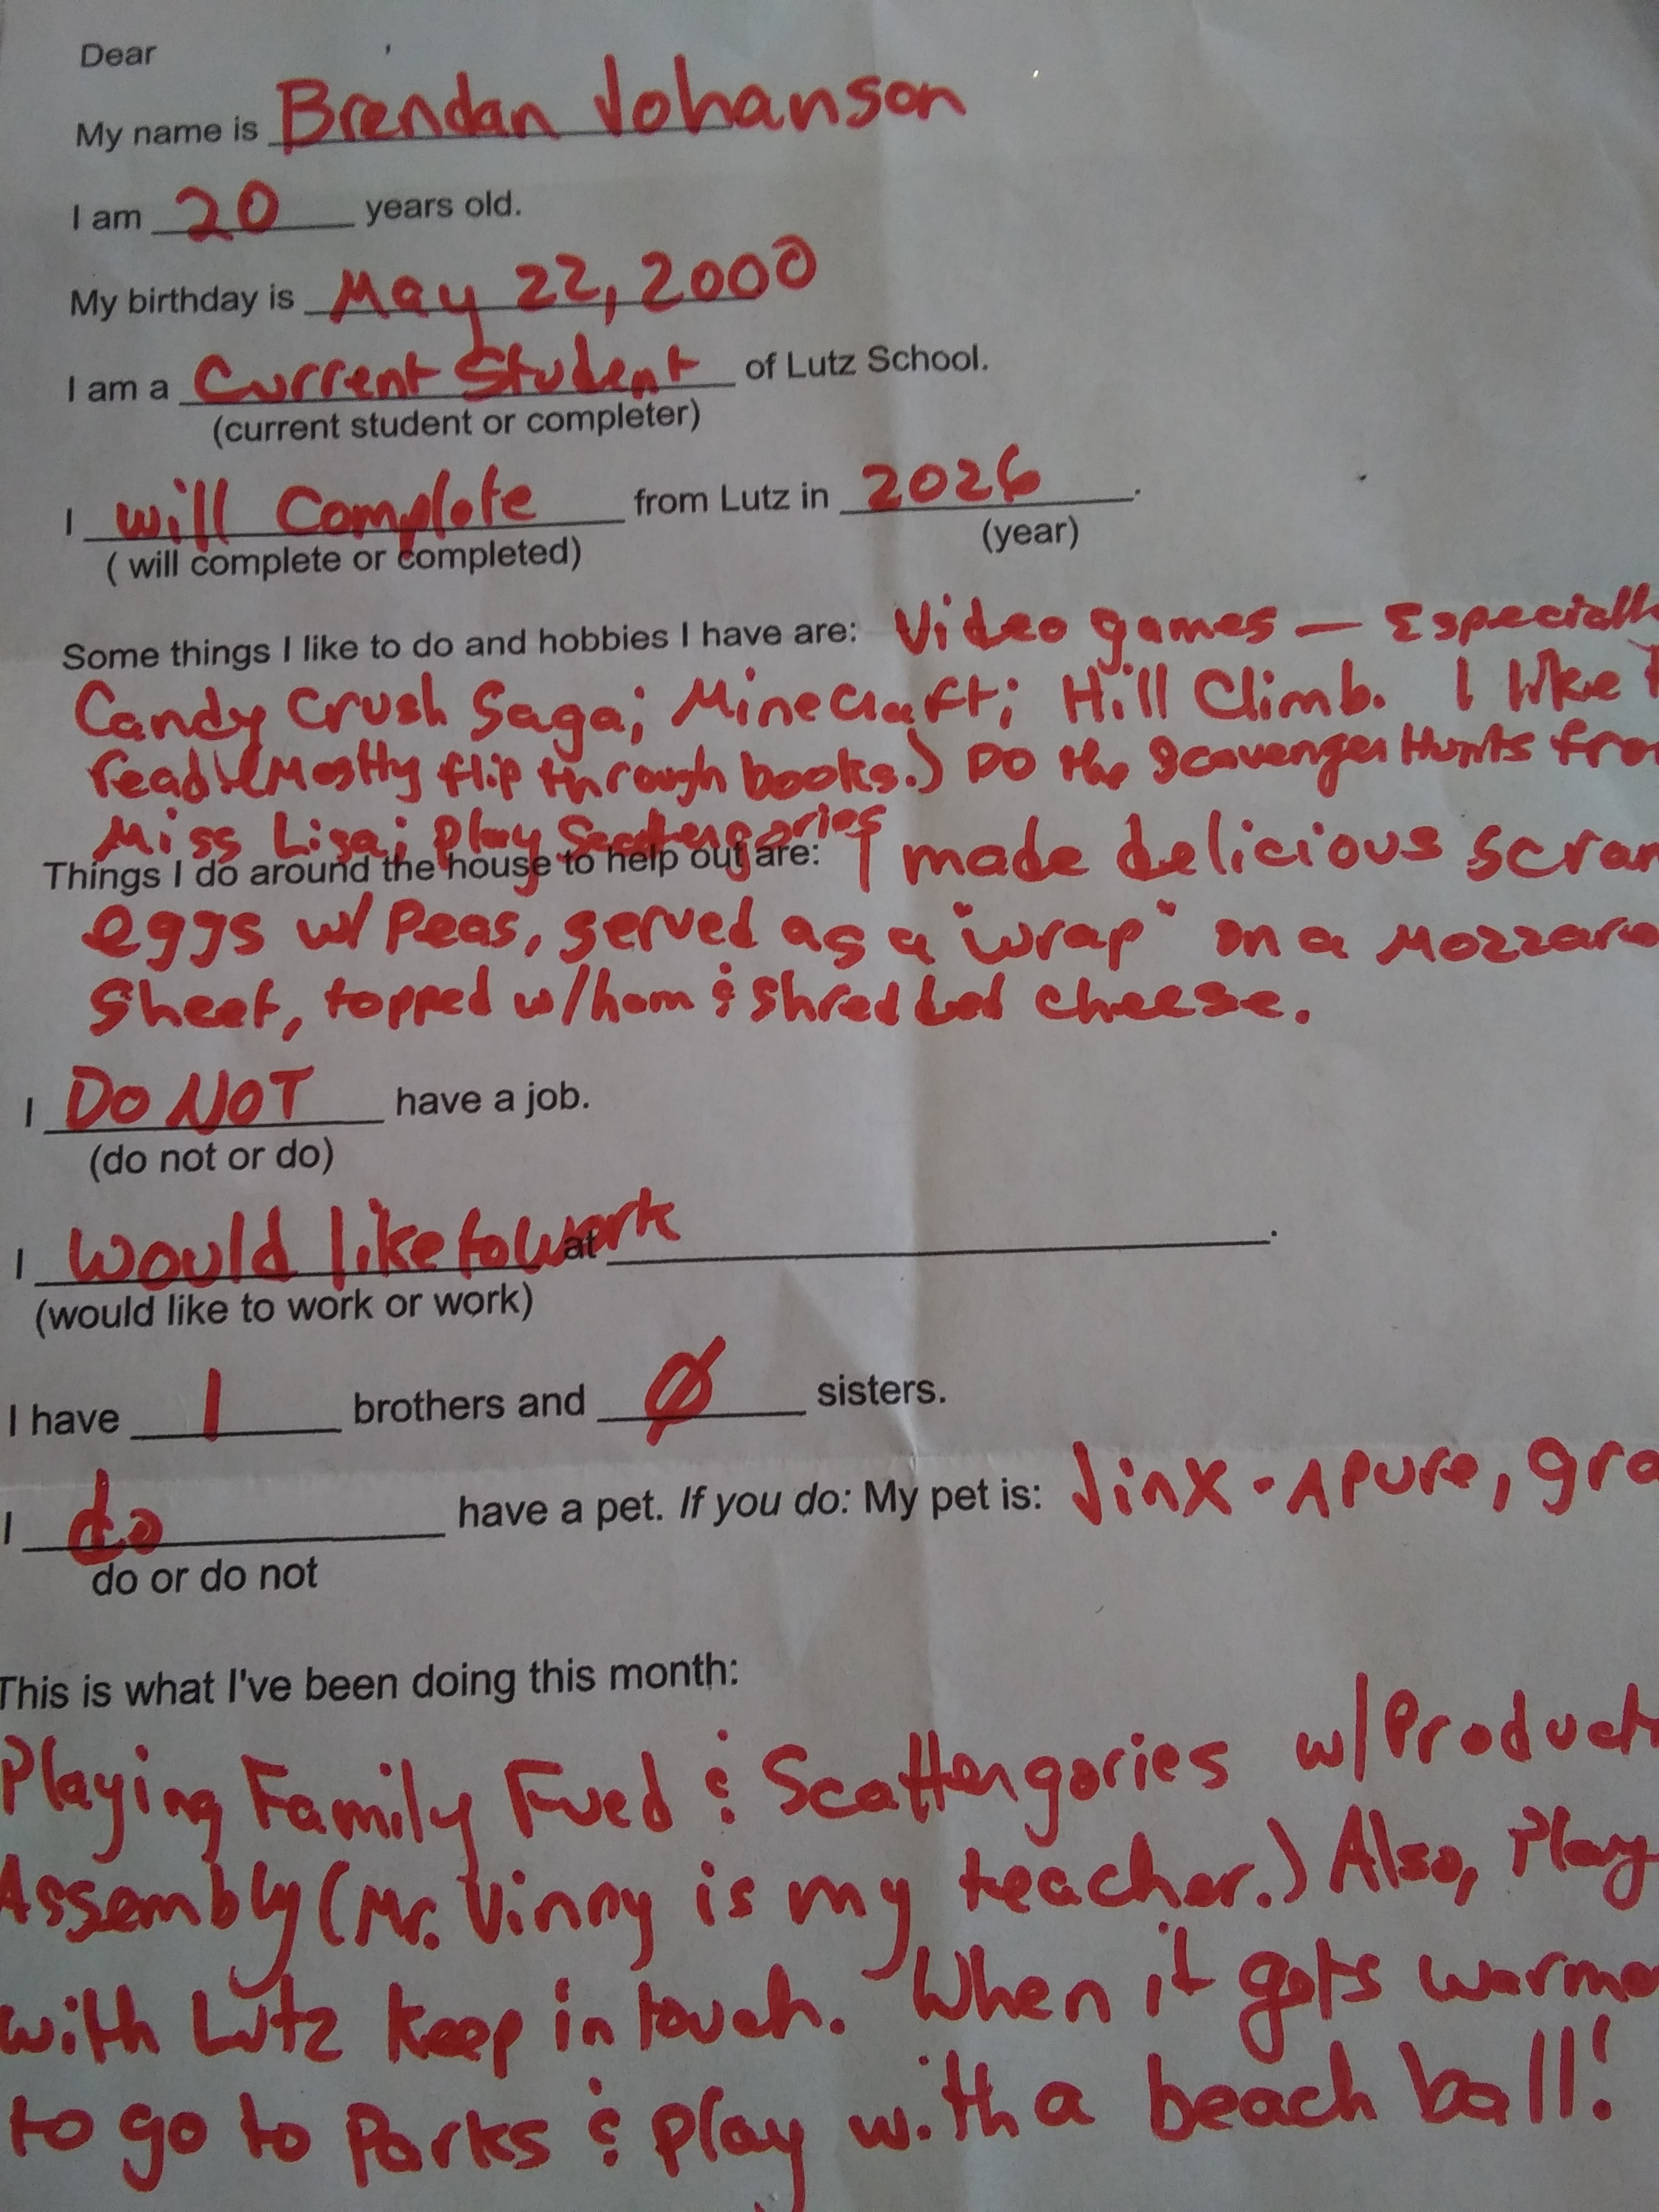 Dear
My name is Brendan Johanson
I am 20 years old.
My birthday is May 22, 2000
I am a Current Student of Lutz School.
(current student or completer)
I will Complete from Lutz in 2026.
( will complete or completed) (year)
Some things I like to do and hobbies I have are: Video games — Especiall
Candy Crush Saga; Minecraft; Hill Climb. I like
read (Mostly flip through books.) Do the Scavenger Hunts fro
Miss Lisa; Play Scattergories
Things I do around the house to help out are: I made delicious scram
eggs w/ Peas, served as a "wrap" on a Mozzare
Sheet, topped w/ham & shredded cheese.
I DO NOT have a job.
(do not or do)
I would like to work at.
(would like to work or work)
I have 1 brothers and Ø sisters.
I do have a pet. If you do: My pet is: Jinx - A pure, gra
do or do not
This is what I've been doing this month:
Playing Family Fued & Scattergories w/ Product
Assembly (Mr. Vinny is my teacher.) Also, Play
with Lutz Keep in touch. When it gets warme
to go to Parks & play with a beach ball!